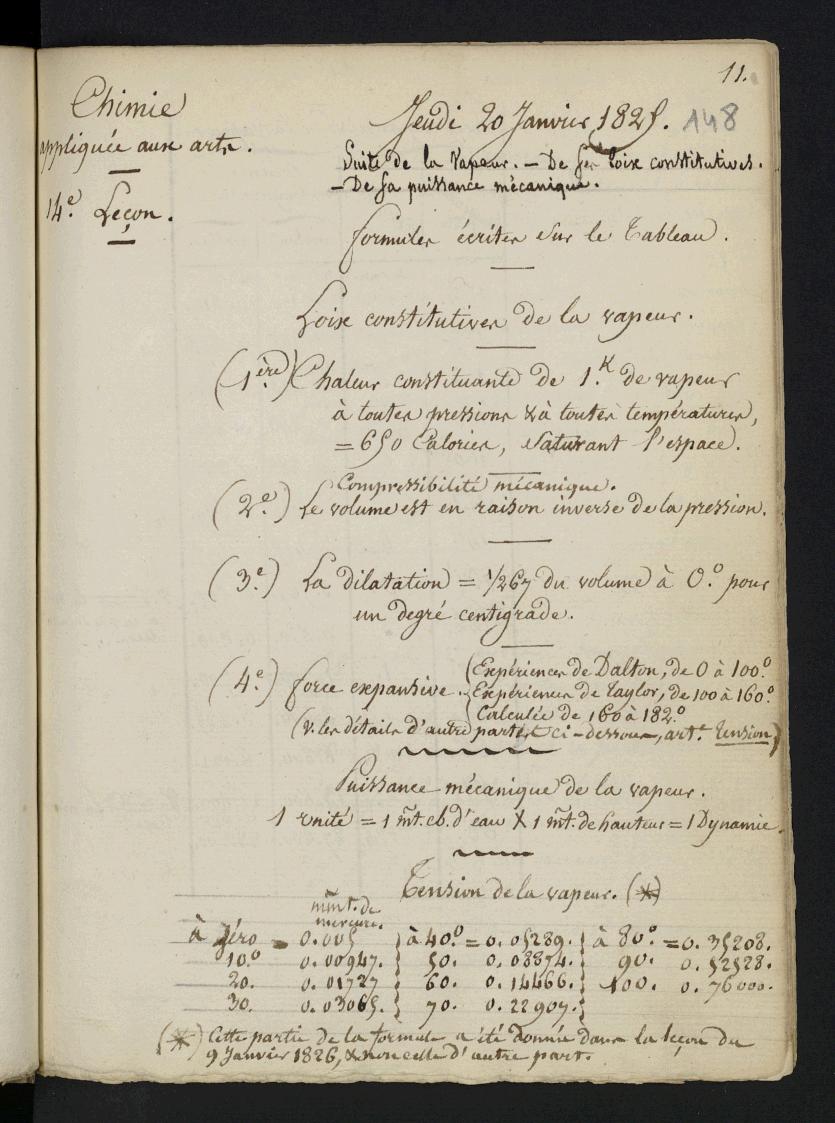 11.
148
Chimie
appliquée aux arts.
14.e Leçon.
Jeudi 20 Janvier 1825.
Suite de la Vapeur. — De ses loix constitutives.
— De sa puissance mécanique.
formules écrites sur le Tableau.
Loix constitutives de la vapeur.
(1.ère) Chaleur constituante de 1.K de vapeur
à toutes pressions & à toutes températures,
= 650 Calories, saturant l'espace.
Compressibilité mécanique.
(2.e) Le volume est en raison inverse de la pression.
(3.e) La dilatation = 1/267 du volume à 0.° pour
un degré centigrade.
(4.e) force expansive. { Expériences de Dalton, de 0 à 100.°
Expériences de Taylor, de 100 à 160.°
Calculée de 160 à 182.°
(v. les détails d'autre part et ci-dessous, art.t Tension)
Puissance mécanique de la vapeur.
1 unité = 1 mt. cb. d'eau X 1 mt. de hauteur = 1 Dynamie.
Tension de la vapeur. (*)
mmt. de
mercure.
à zéro = 0.005 } à 40.° = 0.05289. } à 80.° = 0.35208.
10.° 0.00947. } 50. 0.08874. } 90. 0.52528.
20. 0.01727 } 60. 0.14466. } 100. 0.76000.
30. 0.03065. } 70. 0.22907. }
(*) Cette partie de la formule a été donnée dans la leçon du
9 Janvier 1826, & non celle d'autre part.